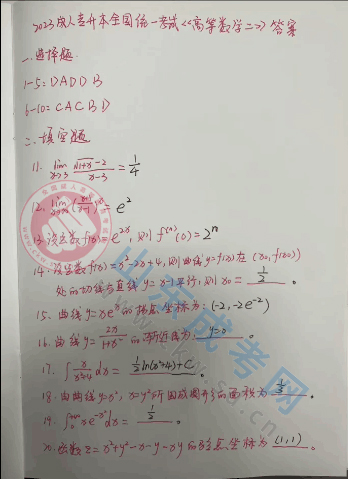 2023成人专升本全国统一考试《高等数学二》答案
一.选择题
1-5: DADDB
6-10: CACBD
二.填空题
11. lim x→3 (√(1+x) - 2)/(x-3) = 1/4
12. lim = e²
13. 设函数f(x)=e^(2x), 则 f^(n)(0)=2^n
14. 设函数f(x)=x²-2x+4, 则曲线y=f(x)在(x₀,f(x₀))
处的切线与直线y=x-1平行, 则x₀= 1/2 。
15. 曲线y=xe^x的拐点坐标为: (-2,-2e^(-2))
16. 曲线y= 2x/(1+x²) 的渐近线为: y=0 。
17. ∫ x/(x²+4) dx = 1/2 ln(x²+4)+C 。
18. 由曲线y=x², x=y²所围成图形的面积为 1/3 。
19. ∫₀^(+∞) xe^(-x²)dx = 1/2 。
20. 函数z=x²+y²-x-y-xy的驻点坐标为 (1,1) 。
山东成考网